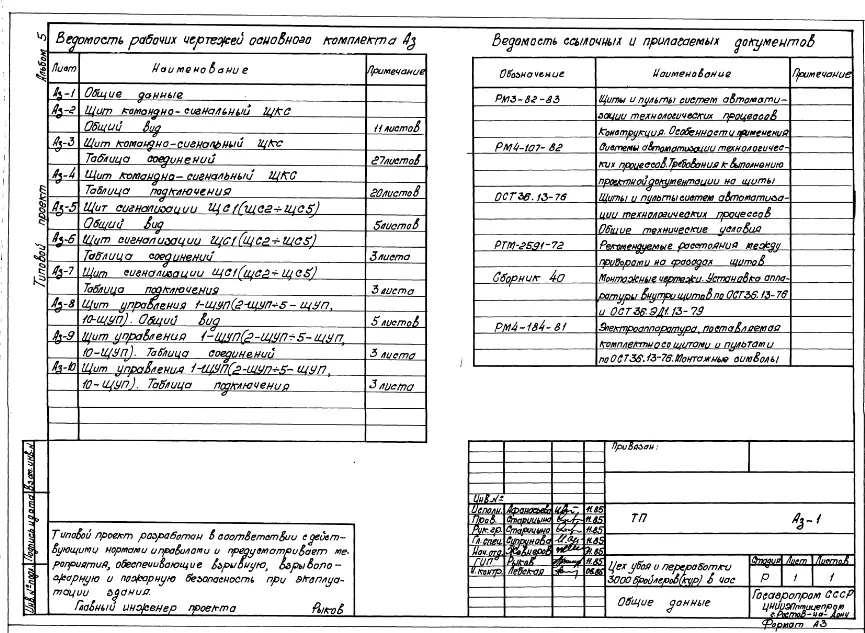 Альбом 5
Типовой проект
Ведомость рабочих чертежей основного комплекта Аз
Лист Наименование Примечание
Аз-1 Общие данные
Аз-2 Щит командно-сигнальный ЩКС
Общий вид 11 листов
Аз-3 Щит командно-сигнальный ЩКС
Таблица соединений 27листов
Аз-4 Щит командно-сигнальный ЩКС
Таблица подключения 20листов
Аз-5 Щит сигнализации ЩС1(ЩС2÷ЩС5)
Общий вид 5листов
Аз-6 Щит сигнализации ЩС1(ЩС2÷ЩС5)
Таблица соединений 3листа
Аз-7 Щит сигнализации ЩС1(ЩС2÷ЩС5)
Таблица подключения 3 листа
Аз-8 Щит управления 1-ЩУП(2-ЩУП÷5-ЩУП,
10-ЩУП). Общий вид 5 листов
Аз-9 Щит управления 1-ЩУП(2-ЩУП÷5-ЩУП,
10-ЩУП). Таблица соединений 3 листа
Аз-10 Щит управления 1-ЩУП(2-ЩУП÷5-ЩУП,
10-ЩУП). Таблица подключения 3 листа
Ведомость ссылочных и прилагаемых документов
Обозначение Наименование Примечание
РМ3-82-83 Щиты и пульты систем автомати-
зации технологических процессов
Конструкция. Особенности применения
РМ4-107-82 Системы автоматизации технологичес-
ких процессов. Требования к выполнению
проектной документации на щиты
ОСТ 36.13-76 Щиты и пульты систем автоматиза-
ции технологических процессов
Общие технические условия
РТМ-2591-72 Рекомендуемые расстояния между
приборами на фасадах щитов
Сборник 40 Монтажные чертежи. Установка аппа-
ратуры внутри щитов по ОСТ 36.13-76
и ОСТ 36.ЭД1.13-79
РМ4-184-81 Электроаппаратура, поставляемая
комплектно со щитами и пультами
по ОСТ 36.13-76. Монтажные символы
Инв.№подл. Подпись и дата Взам.инв.№
Типовой проект разработан в соответствии с дейст-
вующими нормами и правилами и предусматривает ме-
роприятия, обеспечивающие взрывную, взрывопо-
жарную и пожарную безопасность при эксплуа-
тации здания.
Главный инженер проекта Рыков
Привязан:
Инв.№
Исполн. Афанасьева 11.85
Пров. Старицына 11.85
Рук.гр. Старицына 11.85
Гл.спец. Супрунова 11.85
Нач.отд. 11.85
ГИП Рыков 11.85
Н.контр. Левская 06.86
ТП Аз-1
Цех убоя и переработки
3000 бройлеров(кур) в час
Стадия Лист Листов
Р 1 1
Общие данные
Госагропром СССР
ЦНИИЭПптицепром
г.Ростов-на-Дону
Формат А3